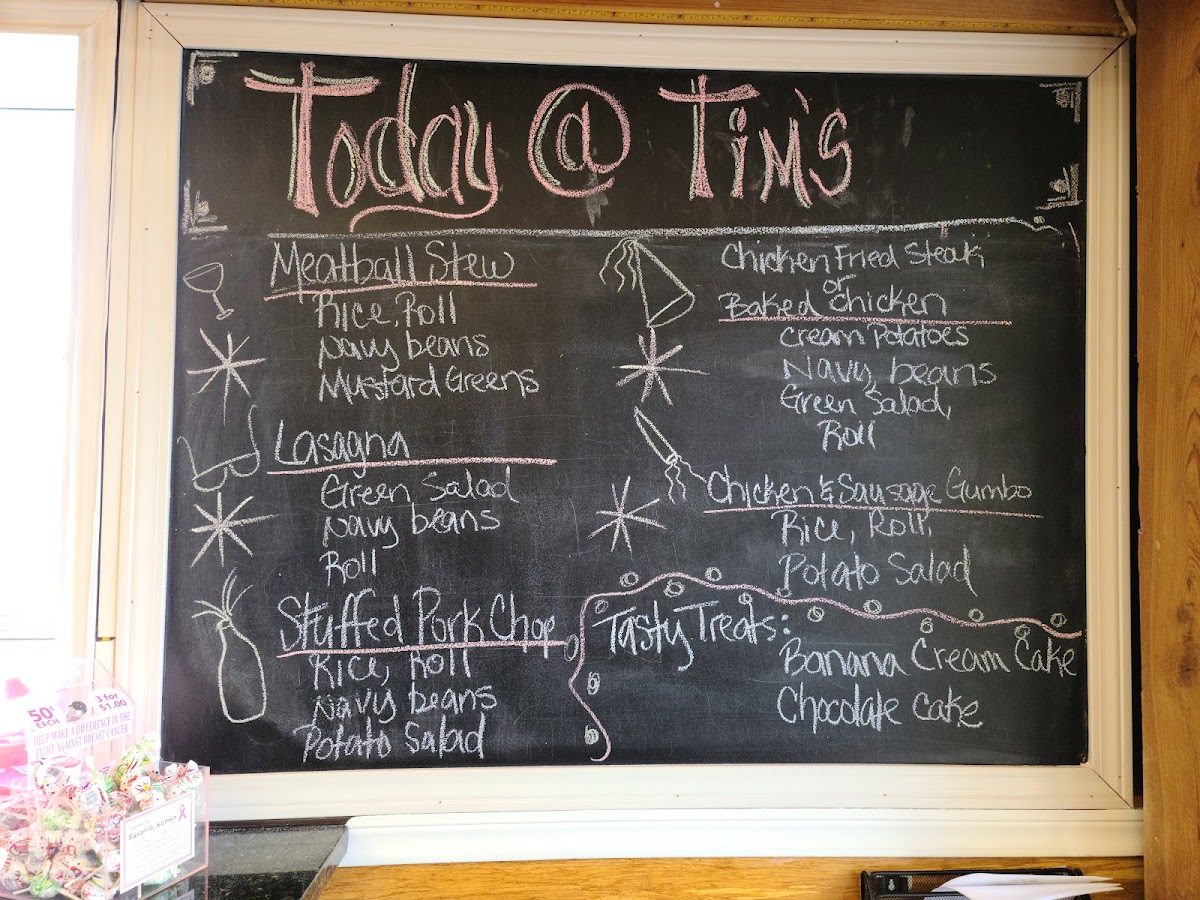 Today @ Tim's
Meatball Stew
Rice, Roll
Navy beans
Mustard Greens
Lasagna
Green Salad
Navy beans
Roll
Stuffed Pork Chop
Rice, Roll
Navy beans
Potato Salad
Chicken Fried Steak
or
Baked Chicken
Cream Potatoes
Navy beans
Green Salad,
Roll
Chicken & Sausage Gumbo
Rice, Roll,
Potato Salad
Tasty Treats:
Banana Cream Cake
Chocolate Cake
50¢ EACH
3 for $1.00
HELP MAKE A DIFFERENCE IN THE
FIGHT AGAINST BREAST CANCER
Susan G. Komen